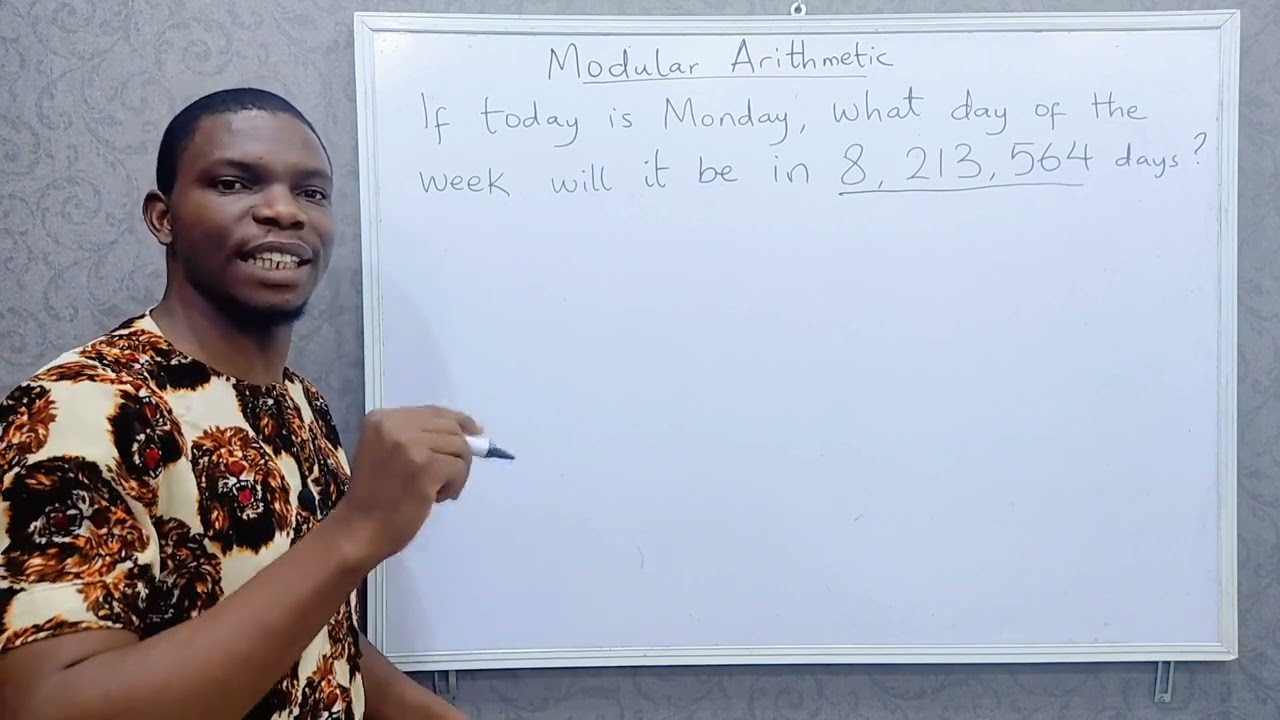 Modular Arithmetic
If today is Monday, what day of the
week will it be in 8, 213, 564 days?